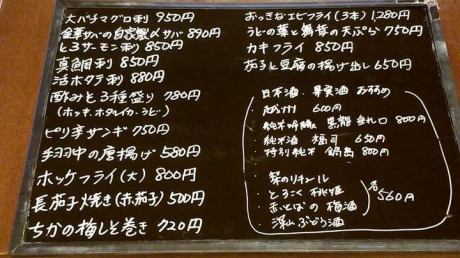 大バチマグロ刺 950円
金華サバの自家製〆サバ 890円
とろサーモン刺 850円
真鯛刺 850円
活ホタテ刺 880円
酢みそ3種盛り 780円
(ホッキ、ホタルイカ、うど)
ピリ辛ザンギ 750円
手羽中の唐揚げ 580円
ホッケフライ(大) 800円
長茄子焼き(赤茄子) 500円
ちかの梅しそ巻き 720円
おっきなエビフライ(3本) 1,280円
うどの葉と舞茸の天ぷら 750円
カキフライ 850円
茄子と豆腐の揚げ出し 650円
日本酒・果実酒 おすすめ
600円
純米吟醸 黒龍 垂れ口 800円
純米酒 福司 650円
特別純米 鍋島 800円
・梨のリキュール
・とろこく桃姫
・あいとばの梅酒
・深山ぶどう酒
各560円